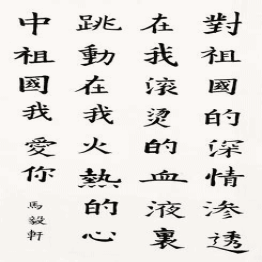 對祖國的深情滲透
在我滾燙的血液裏
跳動在我火熱的心
中祖國我愛你
馬毅軒